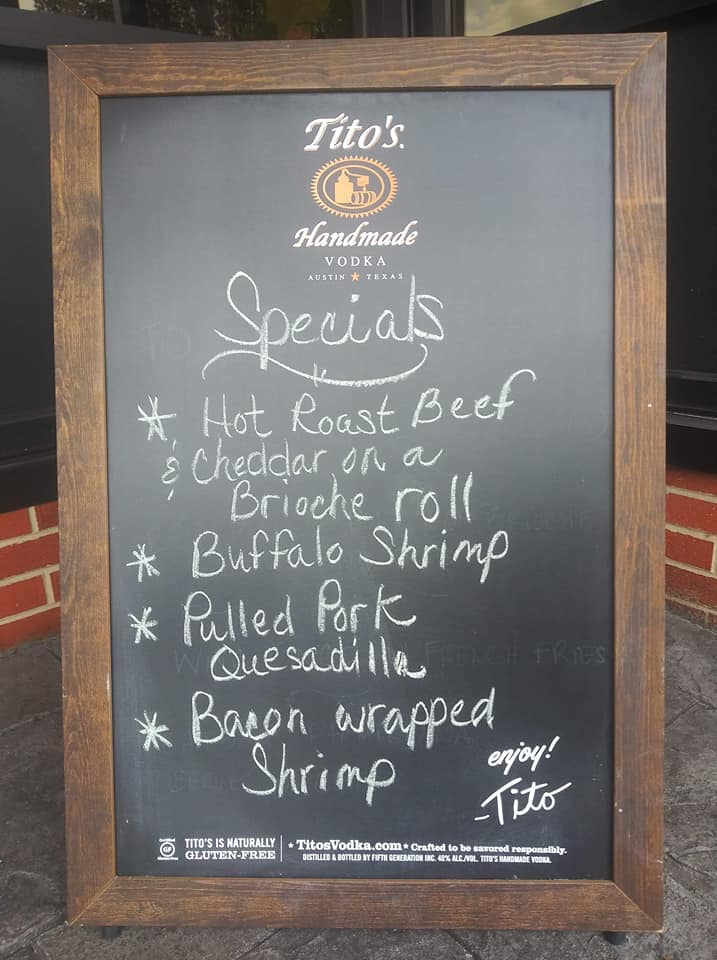 Tito's
Handmade
VODKA
AUSTIN ★ TEXAS
Specials
* Hot Roast Beef
& Cheddar on a
Brioche roll
* Buffalo Shrimp
* Pulled Pork
Quesadilla
FRENCH FRIES
* Bacon wrapped
Shrimp
enjoy!
-Tito
Certified
GF
Gluten-Free
TITO'S IS NATURALLY
GLUTEN-FREE
* TitosVodka.com * Crafted to be savored responsibly.
DISTILLED & BOTTLED BY FIFTH GENERATION INC. 40% ALC./VOL. TITO'S HANDMADE VODKA.